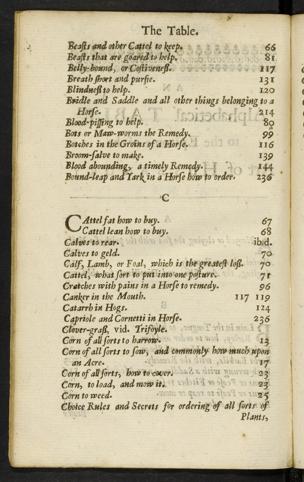 The Table.
Beasts and other Cattel to keep. 66
Beasts that are goared to help. 81
Belly-bound, or Costiveness. 117
Breath short and pursie. 131
Blindness to help. 120
Bridle and Saddle and all other things belonging to a
Horse. 214
Blood-pissing to help. 80
Bots or Maw-worms the Remedy. 99
Botches in the Groins of a Horse. 116
Broom-salve to make. 139
Blood abounding, a timely Remedy. 144
Bound-leap and Tark in a Horse how to order. 236
C
CAttel fat how to buy. 67
Cattel lean how to buy. 68
Calves to rear. ibid.
Calves to geld. 70
Calf, Lamb, or Foal, which is the greatest loss. 70
Cattel, what sort to put into one pasture. 71
Cratches with pains in a Horse to remedy. 96
Canker in the Mouth. 117 119
Catarrh in Hogs. 124
Capriole and Cornetti in Horse. 236
Clover-grass, vid. Trifoyle.
Corn of all sorts to harrow. 13
Corn of all sorts to sow, and commonly how much upon
an Acre. 17
Corn of all sorts, how to cover. 23
Corn, to load, and mow it. 23
Corn to weed. 25
Choice Rules and Secrets for ordering of all sorts of
Plants,